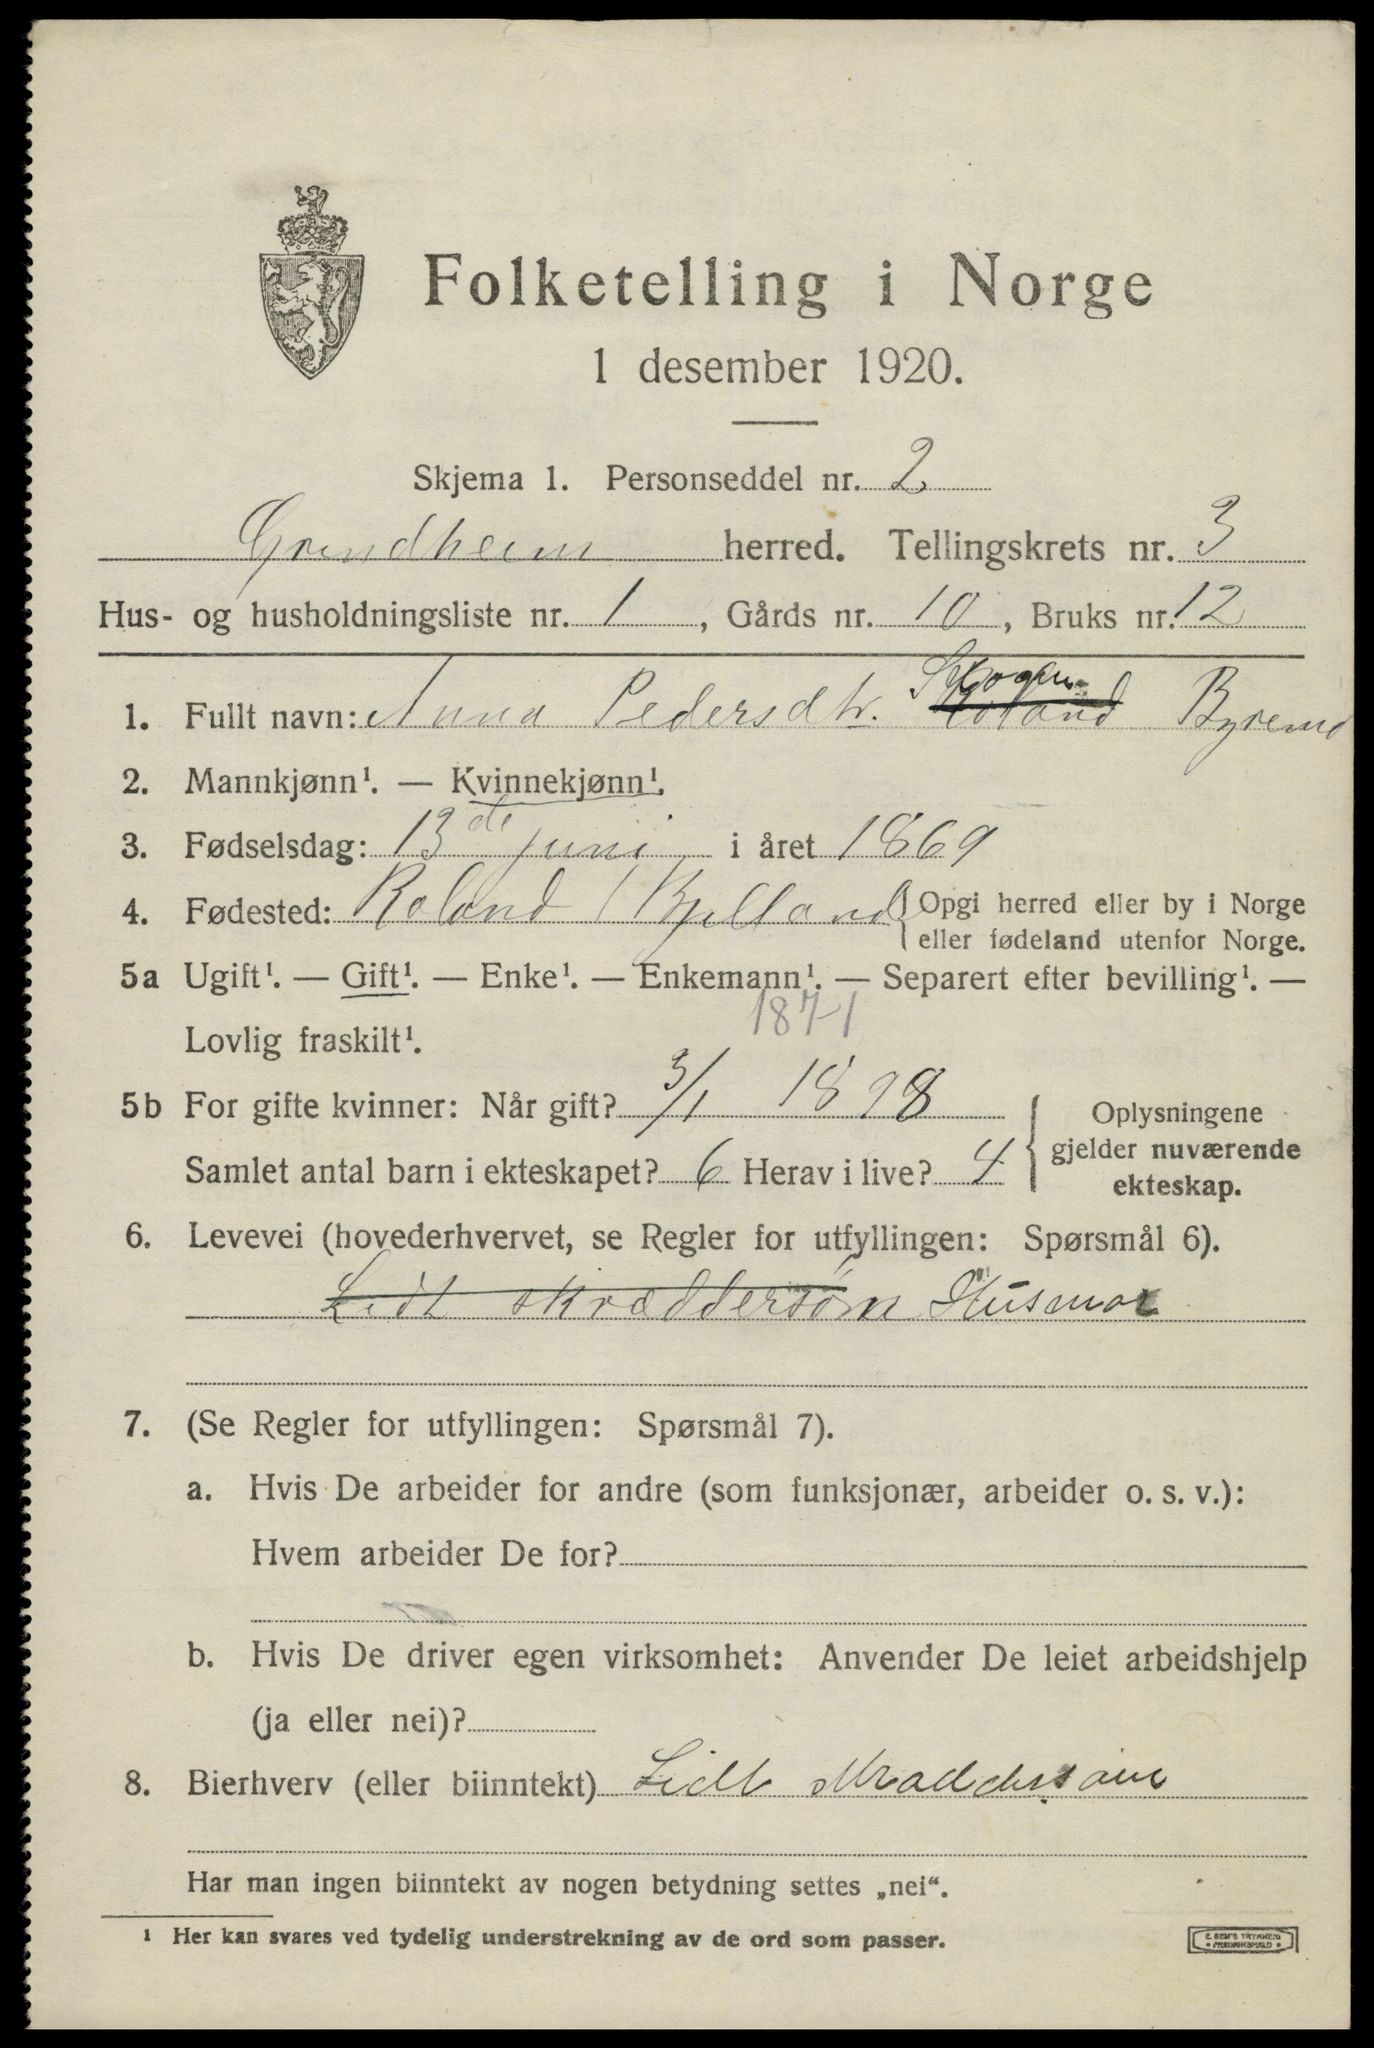 Folketelling i Norge
1 desember 1920.
Skjema 1. Personseddel nr. 2
Grindheim herred. Tellingskrets nr. 3
Hus- og husholdningsliste nr. 1, Gårds nr. 10, Bruks nr. 12
Skogen
1. Fullt navn: Anna Pedersdtr. Roland Byremo
2. Mannkjønn¹. — Kvinnekjønn¹.
3. Fødselsdag: 13de juni i året 1869
4. Fødested: Roland / Bjelland { Opgi herred eller by i Norge
eller fødeland utenfor Norge.
5a Ugift¹. — Gift¹. — Enke¹. — Enkemann¹. — Separert efter bevilling¹. —
Lovlig fraskilt¹. 1871
5b For gifte kvinner: Når gift? 3/1 1898
Samlet antal barn i ekteskapet? 6 Herav i live? 4
Oplysningene
gjelder nuværende
ekteskap.
6. Levevei (hovederhvervet, se Regler for utfyllingen: Spørsmål 6).
Lidt skræddersøm Husmor
7. (Se Regler for utfyllingen: Spørsmål 7).
a. Hvis De arbeider for andre (som funksjonær, arbeider o. s. v.):
Hvem arbeider De for?
b. Hvis De driver egen virksomhet: Anvender De leiet arbeidshjelp
(ja eller nei)?
8. Bierhverv (eller biinntekt) Lidt skræddersøm
Har man ingen biinntekt av nogen betydning settes „nei“.
¹ Her kan svares ved tydelig understrekning av de ord som passer.
E. SEM'S TRYKKERI
• FREDRIKSHALD •